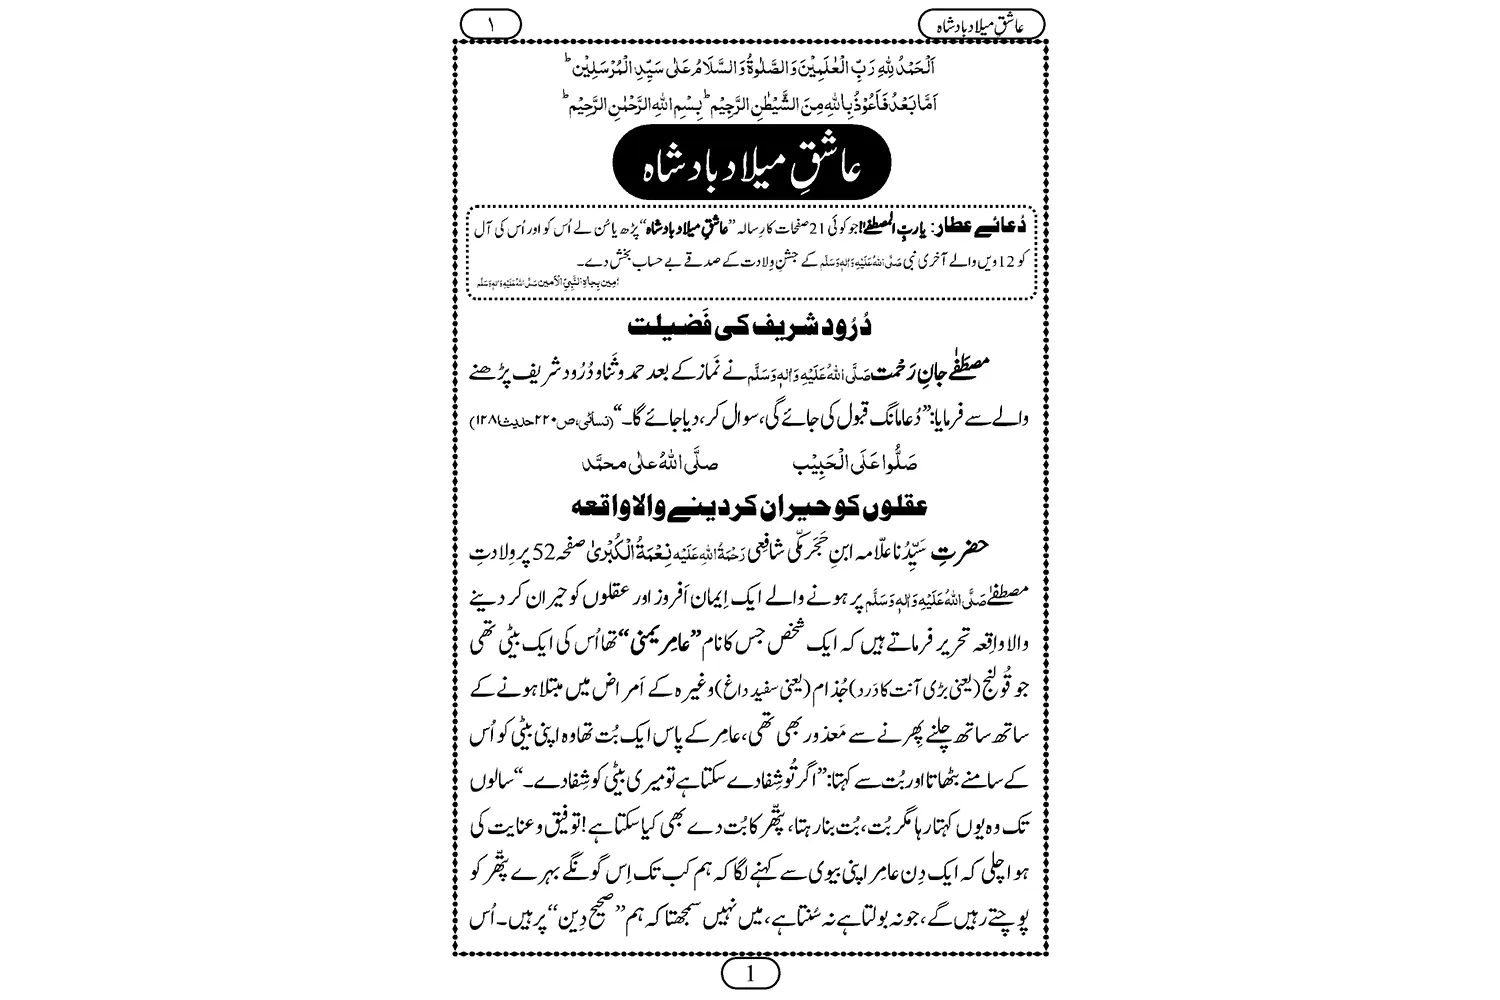 عاشقِ میلاد بادشاہ
۱
اَلْحَمْدُ لِلّٰهِ رَبِّ الْعٰلَمِیْنَ وَالصَّلٰوةُ وَالسَّلَامُ عَلٰی سَیِّدِ الْمُرْسَلِیْنَ ؕ
اَمَّا بَعْدُ فَاَعُوْذُ بِاللّٰهِ مِنَ الشَّیْطٰنِ الرَّجِیْمِ ؕ بِسْمِ اللّٰهِ الرَّحْمٰنِ الرَّحِیْمِ ؕ
عاشقِ میلاد بادشاہ
دُعائے عطار: یاربِّ المصطفےٰ! جو کوئی 21 صفحات کا رِسالہ ”عاشقِ میلاد بادشاہ“ پڑھ یا سُن لے اُس کو اور اُس کی آل
کو 12 ویں والے آخری نبی صَلَّی اللّٰهُ عَلَیْهِ وَاٰلِهٖ وَسَلَّم کے جشنِ وِلادت کے صدقے بے حساب بخش دے۔
اٰمِین بِجاہِ النَّبِیِّ الْاَمین صَلَّی اللّٰهُ عَلَیْهِ وَاٰلِهٖ وَسَلَّم
دُرُود شریف کی فَضیلت
مصطَفٰے جانِ رَحْمت صَلَّی اللّٰهُ عَلَیْهِ وَاٰلِهٖ وَسَلَّم نے نَماز کے بعد حمد و ثَنا و دُرُود شریف پڑھنے
والے سے فرمایا: ”دُعا مانگ قبول کی جائے گی، سوال کر، دیا جائے گا۔“ (نسائی، ص۲۲۰ حدیث ۱۲۸۱)
صَلُّوا عَلَی الْحَبِیْب صلَّی اللّٰهُ علٰی محمَّد
عقلوں کو حیران کردینے والا واقعہ
حضرتِ سَیِّدُنا علّامہ ابنِ حَجَر مکّی شافِعی رَحْمَةُ اللّٰهِ عَلَیْه نِعْمَةُ الْکُبْریٰ صفحہ 52 پر وِلادتِ
مصطفےٰ صَلَّی اللّٰهُ عَلَیْهِ وَاٰلِهٖ وَسَلَّم پر ہونے والے ایک اِیمان اَفروز اور عقلوں کو حیران کر دینے
والا واقِعہ تحریر فرماتے ہیں کہ ایک شخص جس کا نام ”عامِر یمنی“ تھا اُس کی ایک بیٹی تھی
جو قُولنج (یعنی بڑی آنت کا دَرد) جُذام (یعنی سفید داغ) وغیرہ کے اَمراض میں مبتلا ہونے کے
ساتھ ساتھ چلنے پِھرنے سے مَعذور بھی تھی، عامِر کے پاس ایک بُت تھا وہ اپنی بیٹی کو اُس
کے سامنے بٹھاتا اور بُت سے کہتا: ”اگر تُو شِفا دے سکتا ہے تو میری بیٹی کو شِفا دے۔“ سالوں
تک وہ یوں کہتا رہا مگر بُت، بُت بنا رہتا، پتّھر کا بُت دے بھی کیا سکتا ہے! توفیق و عنایت کی
ہوا چلی کہ ایک دِن عامِر اپنی بیوی سے کہنے لگا کہ ہم کب تک اِس گونگے بہرے پتّھر کو
پوجتے رہیں گے، جو نہ بولتا ہے نہ سُنتا ہے، میں نہیں سمجھتا کہ ہم ”صحیح دِین“ پر ہیں۔ اُس
1